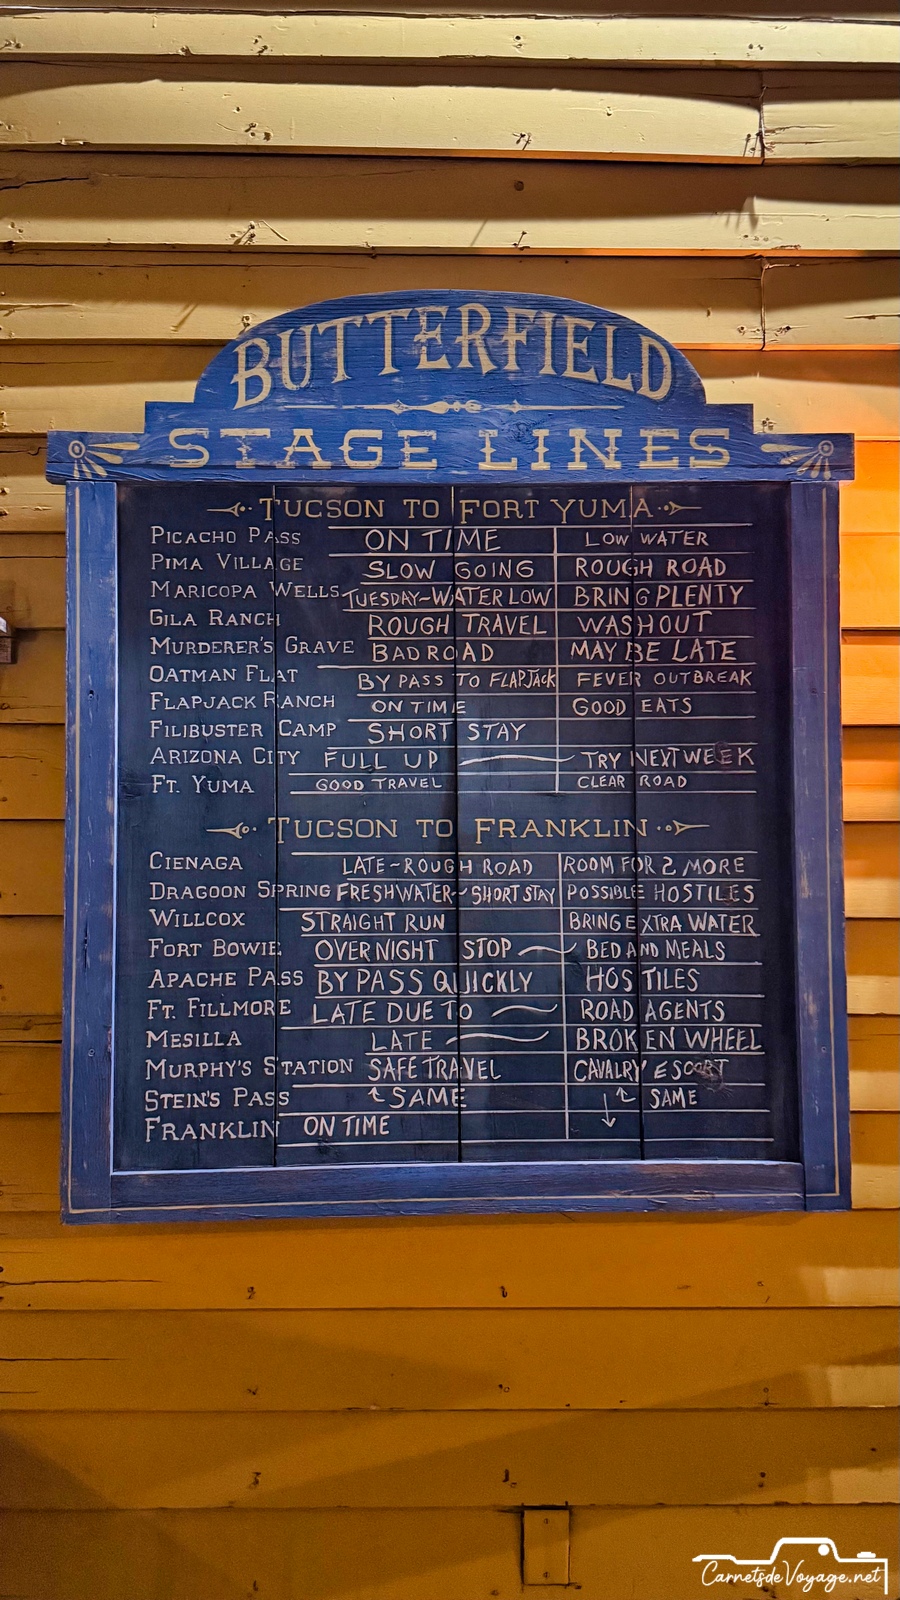 BUTTERFIELD
STAGE LINES
TUCSON TO FORT YUMA
PICACHO PASS ON TIME LOW WATER
PIMA VILLAGE SLOW GOING ROUGH ROAD
MARICOPA WELLS TUESDAY~WATER LOW BRING PLENTY
GILA RANCH ROUGH TRAVEL WASHOUT
MURDERER'S GRAVE BAD ROAD MAY BE LATE
OATMAN FLAT BY PASS TO FLAPJACK FEVER OUTBREAK
FLAPJACK RANCH ON TIME GOOD EATS
FILIBUSTER CAMP SHORT STAY
ARIZONA CITY FULL UP TRY NEXT WEEK
FT. YUMA GOOD TRAVEL CLEAR ROAD
TUCSON TO FRANKLIN
CIENAGA LATE~ROUGH ROAD ROOM FOR 2 MORE
DRAGOON SPRING FRESHWATER~SHORT STAY POSSIBLE HOSTILES
WILLCOX STRAIGHT RUN BRING EXTRA WATER
FORT BOWIE OVERNIGHT STOP ~ BED AND MEALS
APACHE PASS BY PASS QUICKLY HOSTILES
FT. FILLMORE LATE DUE TO ~ ROAD AGENTS
MESILLA LATE ~ BROKEN WHEEL
MURPHY'S STATION SAFE TRAVEL CAVALRY ESCORT
STEIN'S PASS ↑ SAME ↓ ↑ SAME
FRANKLIN ON TIME
CarnetsdeVoyage.net